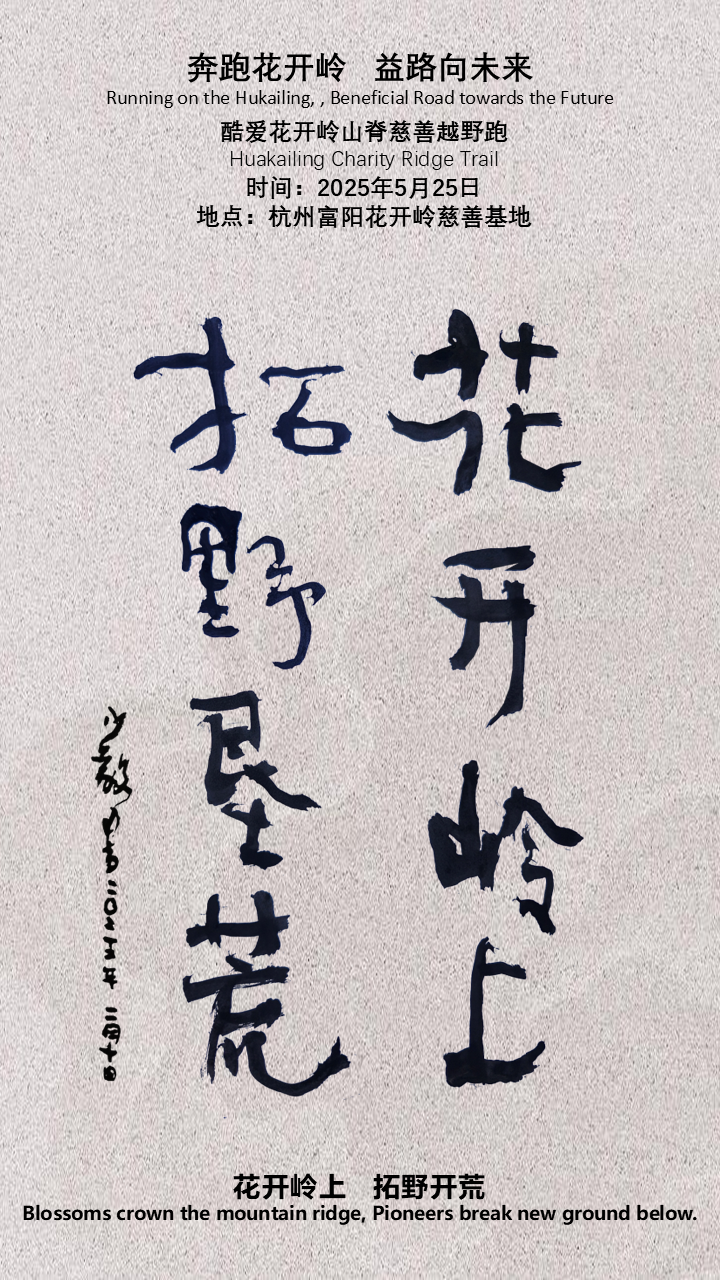 奔跑花开岭 益路向未来
Running on the Hukailing, , Beneficial Road towards the Future
酷爱花开岭山脊慈善越野跑
Huakailing Charity Ridge Trail
时间：2025年5月25日
地点：杭州富阳花开岭慈善基地
花开岭上
拓野垦荒
花开岭上 拓野开荒
Blossoms crown the mountain ridge, Pioneers break new ground below.